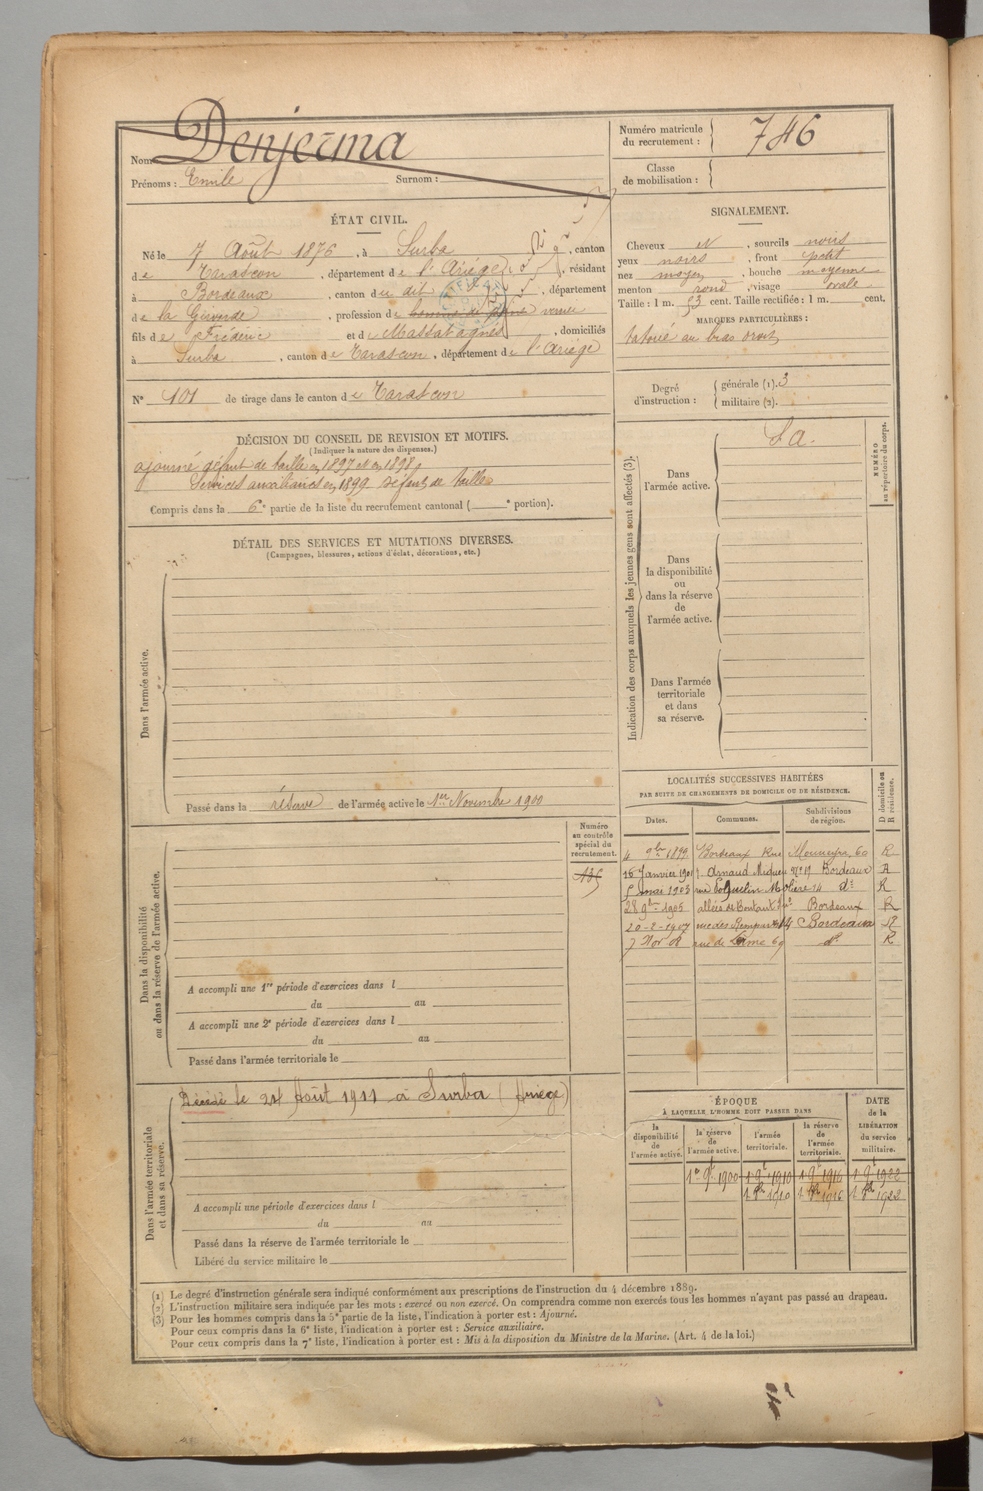 Nom Denjerma
Prénoms : Emile Surnom :
Numéro matricule du recrutement : 746
Classe de mobilisation :
ÉTAT CIVIL.
Né le 7 Août 1876, à Surba, canton
de Tarascon, département de l'Ariège, résidant
à Bordeaux, canton du dit, département
de la Gironde, profession de
fils de Frédéric et de Massat agnès, domiciliés
à Surba, canton de Tarascon, département de l'Ariège
N° 101 de tirage dans le canton de Tarascon
SIGNALEMENT.
Cheveux N, sourcils noirs
yeux noirs, front petit
nez moyen, bouche moyenne
menton rond, visage ovale
Taille : 1 m. 53 cent. Taille rectifiée : 1 m. cent.
MARQUES PARTICULIÈRES :
tatoué au bras droit
Degré d'instruction : générale (1). 3
militaire (2).
DÉCISION DU CONSEIL DE REVISION ET MOTIFS.
(Indiquer la nature des dispenses.)
ajourné défaut de taille en 1897 et en 1898
Services auxiliaires en 1899 défaut de taille
Compris dans la 6e partie de la liste du recrutement cantonal ( e portion).
DÉTAIL DES SERVICES ET MUTATIONS DIVERSES.
(Campagnes, blessures, actions d'éclat, décorations, etc.)
Dans l'armée active.
Passé dans la réserve de l'armée active le 1er Novembre 1900
Indication des corps auxquels les jeunes gens sont affectés (3).
NUMÉRO au répertoire du corps.
S.A.
Dans l'armée active.
Dans la disponibilité ou dans la réserve de l'armée active.
Dans l'armée territoriale et dans sa réserve.
Dans la disponibilité ou dans la réserve de l'armée active.
Numéro au contrôle spécial du recrutement.
A accompli une 1re période d'exercices dans l
du au
A accompli une 2e période d'exercices dans l
du au
Passé dans l'armée territoriale le
LOCALITÉS SUCCESSIVES HABITÉES
PAR SUITE DE CHANGEMENTS DE DOMICILE OU DE RÉSIDENCE.
Dates. Communes. Subdivisions de région. D domicile ou R résidence.
4 9bre 1899 Bordeaux Rue Mouneyra 60 R
16 Janvier 1901 r. Arnaud Miqueu n° 19 Bordeaux R
5 mars 1903 rue Poquelin Molière 14 d° R
28 9bre 1905 allées de Boutaut Bordeaux R
20-2-1907 rue des Bordeaux R
7 Nov rue de 69 d° R
Dans l'armée territoriale et dans sa réserve.
Décédé le 24 Août 1911 à Surba (Ariège)
A accompli une période d'exercices dans l
du au
Passé dans la réserve de l'armée territoriale le
Libéré du service militaire le
ÉPOQUE
À LAQUELLE L'HOMME DOIT PASSER DANS
DATE de la LIBÉRATION du service militaire.
la disponibilité de l'armée active. la réserve de l'armée active. l'armée territoriale. la réserve de l'armée territoriale.
1er 9bre 1900 1 9bre 1910 1 9bre 1916 1 9bre 1922
1 8bre 1910 1 8bre 1916 1 8bre 1922
(1) Le degré d'instruction générale sera indiqué conformément aux prescriptions de l'instruction du 4 décembre 1889.
(2) L'instruction militaire sera indiquée par les mots : exercé ou non exercé. On comprendra comme non exercés tous les hommes n'ayant pas passé au drapeau.
(3) Pour les hommes compris dans la 5e partie de la liste, l'indication à porter est : Ajourné.
Pour ceux compris dans la 6e liste, l'indication à porter est : Service auxiliaire.
Pour ceux compris dans la 7e liste, l'indication à porter est : Mis à la disposition du Ministre de la Marine. (Art. 4 de la loi.)